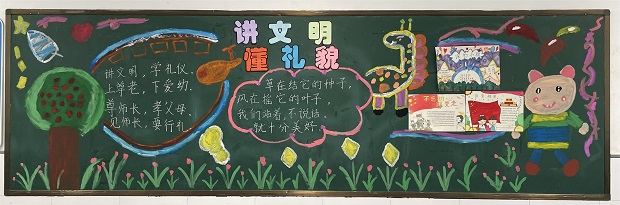 讲文明
懂礼貌
讲文明，学礼仪。
上尊老，下爱幼。
尊师长，孝父母。
见师长，要行礼。
草在结它的种子，
风在摇它的叶子，
我们站着，不说话，
就十分美好。